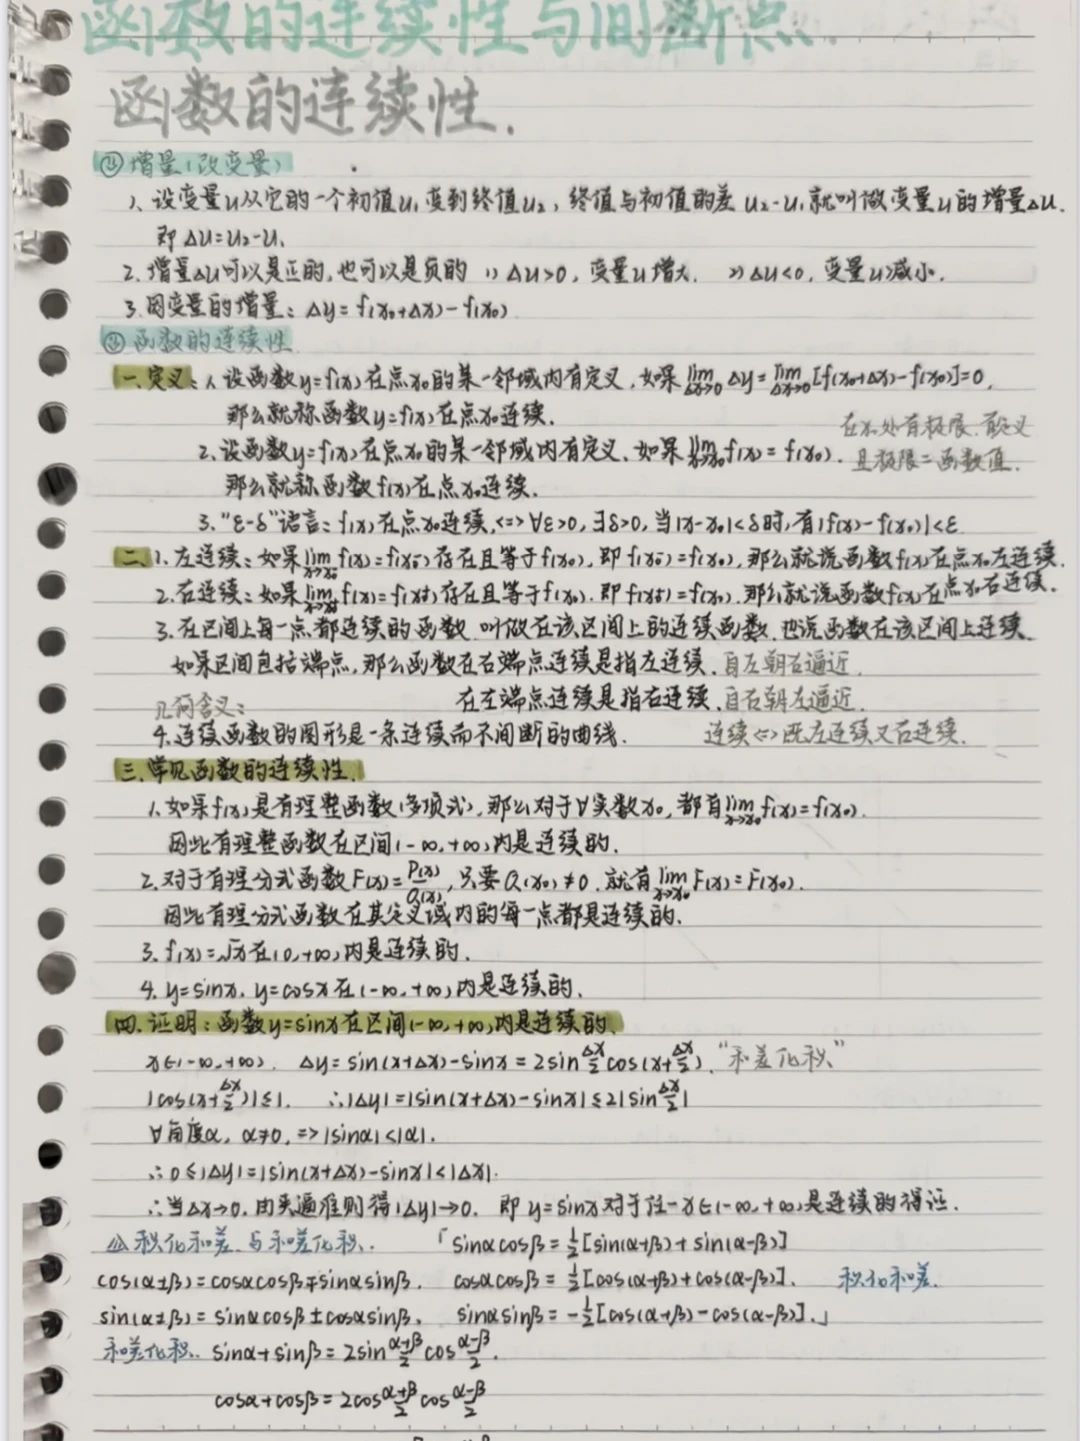 函数的连续性与间断点.
函数的连续性.
⑴ 增量(改变量)
1、设变量u从它的一个初值u₁变到终值u₂, 终值与初值的差 u₂-u₁就叫做变量u的增量Δu.
即 Δu=u₂-u₁
2. 增量Δu可以是正的,也可以是负的 1) Δu>0, 变量u增大. 2) Δu<0, 变量u减小.
3. 因变量的增量: Δy=f(x₀+Δx)-f(x₀)
⑵ 函数的连续性
一.定义: 1. 设函数y=f(x)在点x₀的某一邻域内有定义,如果 lim_{Δx→0} Δy= lim_{Δx→0} [f(x₀+Δx)-f(x₀)]=0,
那么就称函数y=f(x)在点x₀连续.
在x₀处有极限.有定义
2. 设函数y=f(x)在点x₀的某一邻域内有定义, 如果 lim_{x→x₀} f(x)=f(x₀). 且极限=函数值.
那么就称函数f(x)在点x₀连续.
3. "ε-δ"语言: f(x)在点x₀连续,<=>∀ε>0,∃δ>0,当|x-x₀|<δ时,有|f(x)-f(x₀)|<ε
二.1. 左连续: 如果 lim_{x→x₀⁻} f(x)=f(x₀⁻)存在且等于f(x₀),即f(x₀⁻)=f(x₀),那么就说函数f(x)在点x₀左连续.
2. 右连续: 如果 lim_{x→x₀⁺} f(x)=f(x₀⁺)存在且等于f(x₀).即f(x₀⁺)=f(x₀).那么就说函数f(x)在点x₀右连续.
3. 在区间上每一点都连续的函数.叫做在该区间上的连续函数.也说函数在该区间上连续.
如果区间包括端点,那么函数在右端点连续是指左连续. 自左朝右逼近.
在左端点连续是指右连续. 自右朝左逼近.
几何含义:
4. 连续函数的图形是一条连续而不间断的曲线. 连续<=>既左连续又右连续.
三.常见函数的连续性.
1. 如果f(x)是有理整函数(多项式),那么对于∀实数x₀, 都有 lim_{x→x₀} f(x)=f(x₀).
因此有理整函数在区间(-∞,+∞)内是连续的.
2. 对于有理分式函数F(x)=P(x)/Q(x),只要Q(x₀)≠0.就有 lim_{x→x₀} F(x)=F(x₀).
因此有理分式函数在其定义域内的每一点都是连续的.
3. f(x)=√x在(0,+∞)内是连续的.
4. y=sinx. y=cosx在(-∞,+∞)内是连续的.
四.证明:函数y=sinx在区间(-∞,+∞)内是连续的.
x∈(-∞,+∞). Δy=sin(x+Δx)-sinx=2sin(Δx/2)cos(x+Δx/2). "和差化积"
|cos(x+Δx/2)|≤1. ∴|Δy|=|sin(x+Δx)-sinx|≤2|sin(Δx/2)|
∀角度α, α≠0,=>|sinα|<|α|.
∴0≤|Δy|=|sin(x+Δx)-sinx|<|Δx|.
∴当Δx→0.由夹逼准则得|Δy|→0. 即 y=sinx对于任一x∈(-∞,+∞)是连续的得证.
积化和差.与和差化积. 「sinαcosβ=½[sin(α+β)+sin(α-β)]
cos(α±β)=cosαcosβ∓sinαsinβ. cosαcosβ=½[cos(α+β)+cos(α-β)]. 积化和差.
sin(α±β)=sinαcosβ±cosαsinβ. sinαsinβ=-½[cos(α+β)-cos(α-β)].」
和差化积. sinα+sinβ=2sin((α+β)/2)cos((α-β)/2).
cosα+cosβ=2cos((α+β)/2)cos((α-β)/2)